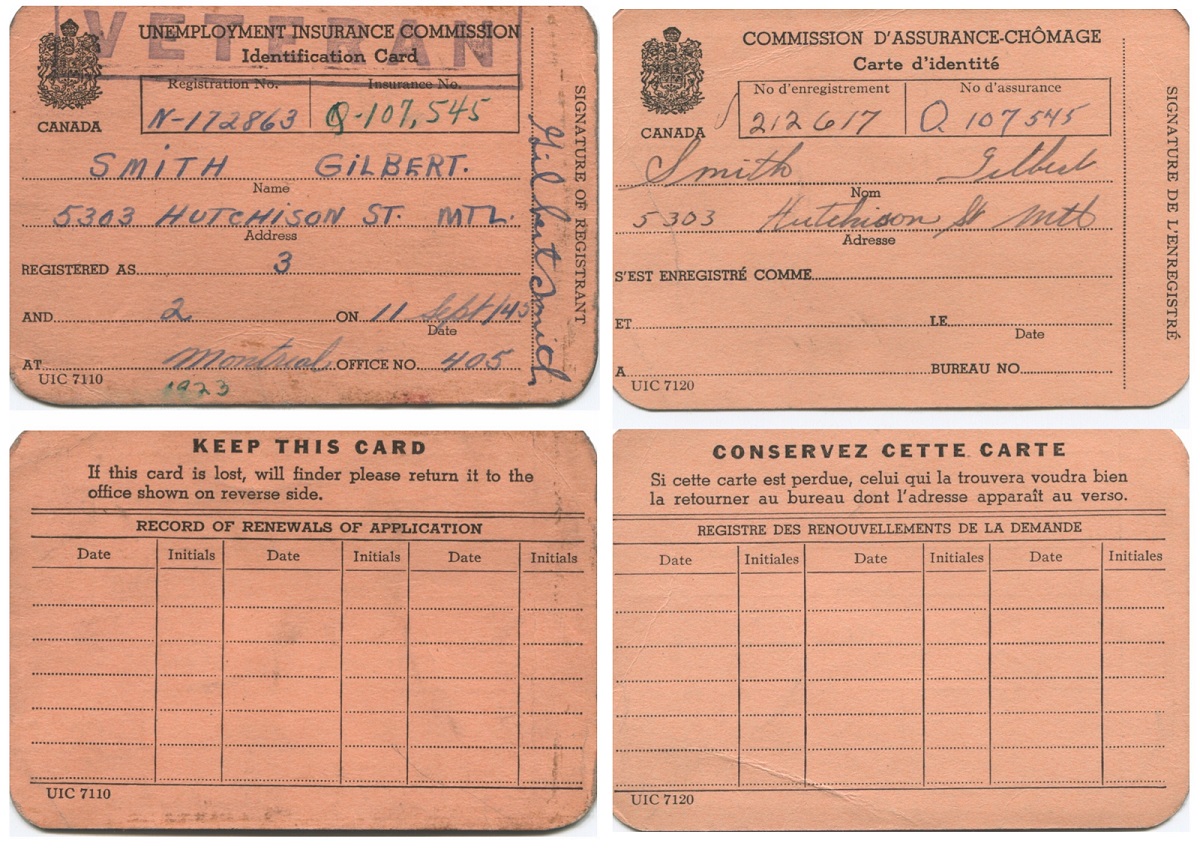 VETERAN
UNEMPLOYMENT INSURANCE COMMISSION
Identification Card
Registration No. Insurance No.
N-172863 Q-107,545
CANADA
SMITH GILBERT.
Name
5303 HUTCHISON ST. MTL.
Address
REGISTERED AS 3
AND 2 ON 11 Sept/45
Date
AT Montreal OFFICE NO. 405
UIC 7110
1923
SIGNATURE OF REGISTRANT
Gilbert Smith
COMMISSION D'ASSURANCE-CHÔMAGE
Carte d'identité
No d'enregistrement No d'assurance
212617 Q 107545
CANADA
Smith Gilbert
Nom
5303 Hutchison St Mtl
Adresse
S'EST ENREGISTRÉ COMME
ET LE
Date
A BUREAU NO.
UIC 7120
SIGNATURE DE L'ENREGISTRÉ
KEEP THIS CARD
If this card is lost, will finder please return it to the
office shown on reverse side.
RECORD OF RENEWALS OF APPLICATION
Date Initials Date Initials Date Initials
UIC 7110
CONSERVEZ CETTE CARTE
Si cette carte est perdue, celui qui la trouvera voudra bien
la retourner au bureau dont l'adresse apparaît au verso.
REGISTRE DES RENOUVELLEMENTS DE LA DEMANDE
Date Initiales Date Initiales Date Initiales
UIC 7120